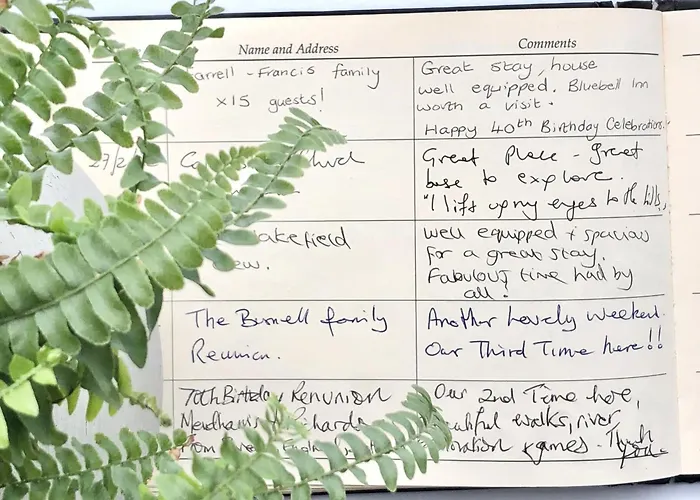 Name and Address
Comments
arrell - Francis family
x15 guests!
Great stay, house
well equipped. Bluebell Inn
worth a visit.
Happy 40th Birthday Celebrations.
27/2
Great Place - great
base to explore.
"I lift up my eyes to the hills,
akefield
ew.
Well equipped + spacious
for a great stay.
Fabulous time had by
all!
The Burnell family
Reunion.
Another Lovely Weekend.
Our Third Time here!!
70th Birthday Renunion
Needhams Richards
Our 2nd Time here,
utiful walks, river
oration & games. Thank
you.